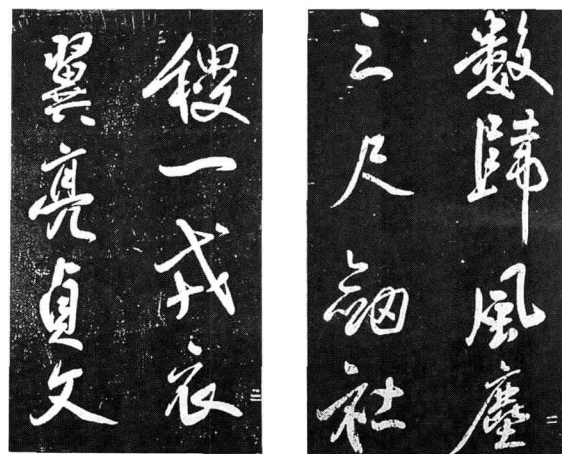 數歸風塵
三尺劒社
二
稷一戎衣
翼亮貞文